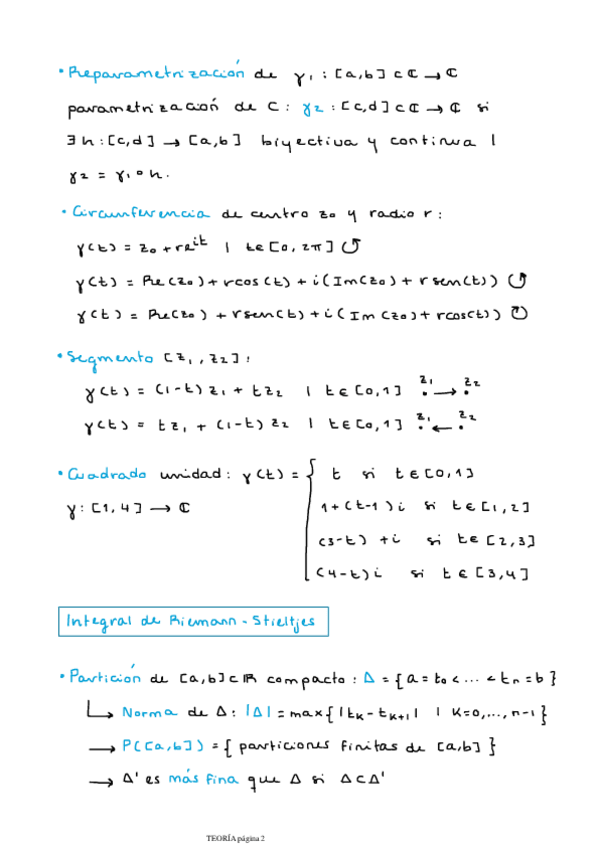 • Reparametrización de γ₁ : [a,b] ⊂ ℂ → ℂ
parametrización de C : γ₂ : [c,d] ⊂ ℂ → ℂ si
∃ h : [c,d] → [a,b] biyectiva y continua |
γ₂ = γ₁ ∘ h.
• Circunferencia de centro z₀ y radio r :
γ(t) = z₀ + re^{it} | t ∈ [0, 2π] ↺
γ(t) = Re(z₀) + rcos(t) + i(Im(z₀) + rsen(t)) ↺
γ(t) = Re(z₀) + rsen(t) + i(Im(z₀) + rcos(t)) ↻
• Segmento [z₁, z₂] :
γ(t) = (1-t) z₁ + t z₂ | t ∈ [0,1] z₁ → z₂
γ(t) = t z₁ + (1-t) z₂ | t ∈ [0,1] z₁ ← z₂
• Cuadrado unidad : γ(t) = { t si t ∈ [0,1]
γ : [1,4] → ℂ 1+(t-1)i si t ∈ [1,2]
(3-t) + i si t ∈ [2,3]
(4-t)i si t ∈ [3,4]
Integral de Riemann - Stieltjes
• Partición de [a,b] ⊂ ℝ compacto : Δ = {a = t₀ < ... < tₙ = b}
↳ Norma de Δ : |Δ| = max{|tₖ - tₖ₊₁| | k=0,..., n-1}
→ P([a,b]) = { particiones finitas de [a,b] }
→ Δ' es más fina que Δ si Δ ⊂ Δ'
TEORÍA página 2